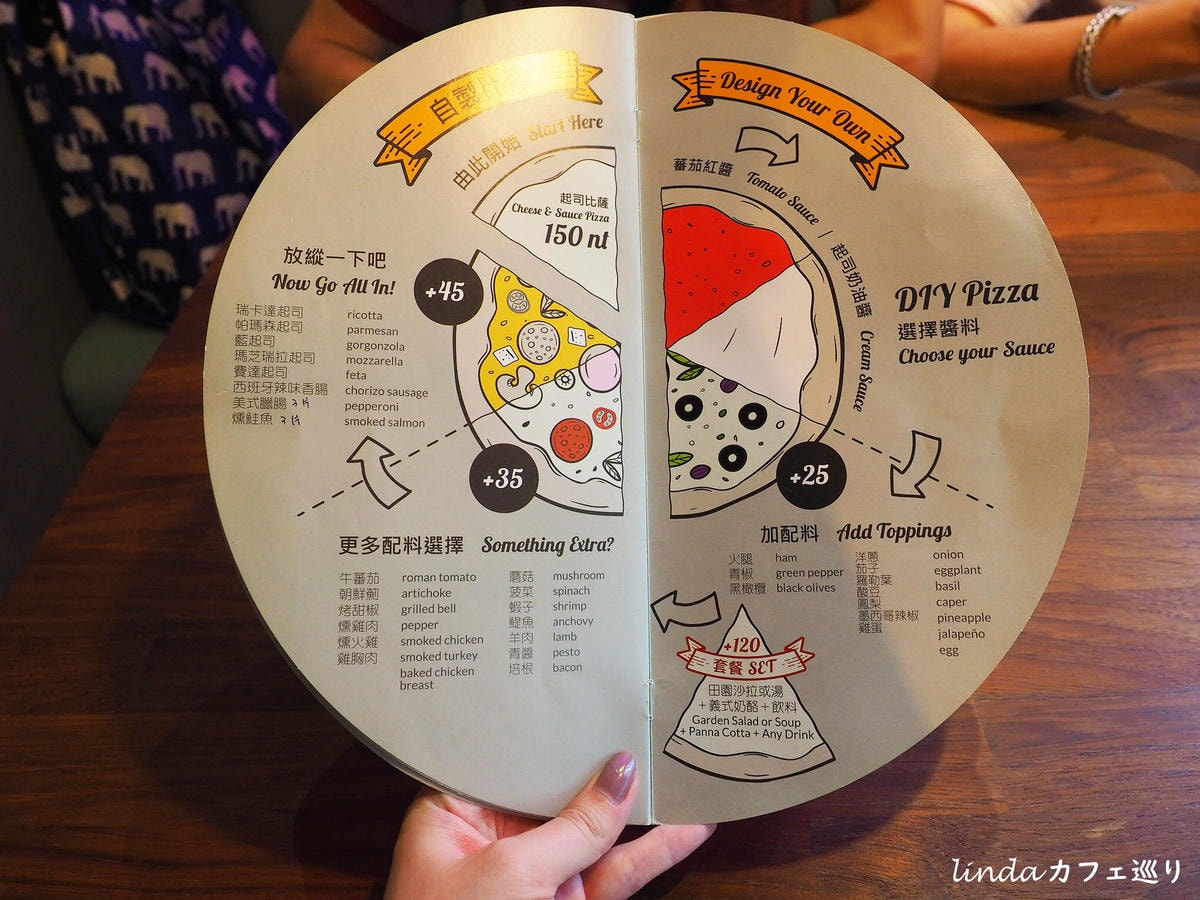 自製比薩
由此開始 Start Here
起司比薩
Cheese & Sauce Pizza
150 nt
放縱一下吧
Now Go All In!
+45
瑞卡達起司 ricotta
帕瑪森起司 parmesan
藍起司 gorgonzola
瑪芝瑞拉起司 mozzarella
費達起司 feta
西班牙辣味香腸 chorizo sausage
美式臘腸 3片 pepperoni
燻鮭魚 3片 smoked salmon
+35
更多配料選擇 Something Extra?
牛蕃茄 roman tomato
朝鮮薊 artichoke
烤甜椒 grilled bell
燻雞肉 pepper
燻火雞 smoked chicken
雞胸肉 smoked turkey
baked chicken
breast
蘑菇 mushroom
菠菜 spinach
蝦子 shrimp
鯷魚 anchovy
羊肉 lamb
青醬 pesto
培根 bacon
Design Your Own
蕃茄紅醬 Tomato Sauce | 起司奶油醬 Cream Sauce
DIY Pizza
選擇醬料
Choose your Sauce
+25
加配料 Add Toppings
火腿 ham
青椒 green pepper
黑橄欖 black olives
洋蔥 onion
茄子 eggplant
羅勒葉 basil
酸豆 caper
鳳梨 pineapple
墨西哥辣椒 jalapeño
雞蛋 egg
+120
套餐 SET
田園沙拉或湯
+義式奶酪+飲料
Garden Salad or Soup
+ Panna Cotta + Any Drink
lindaカフェ巡り